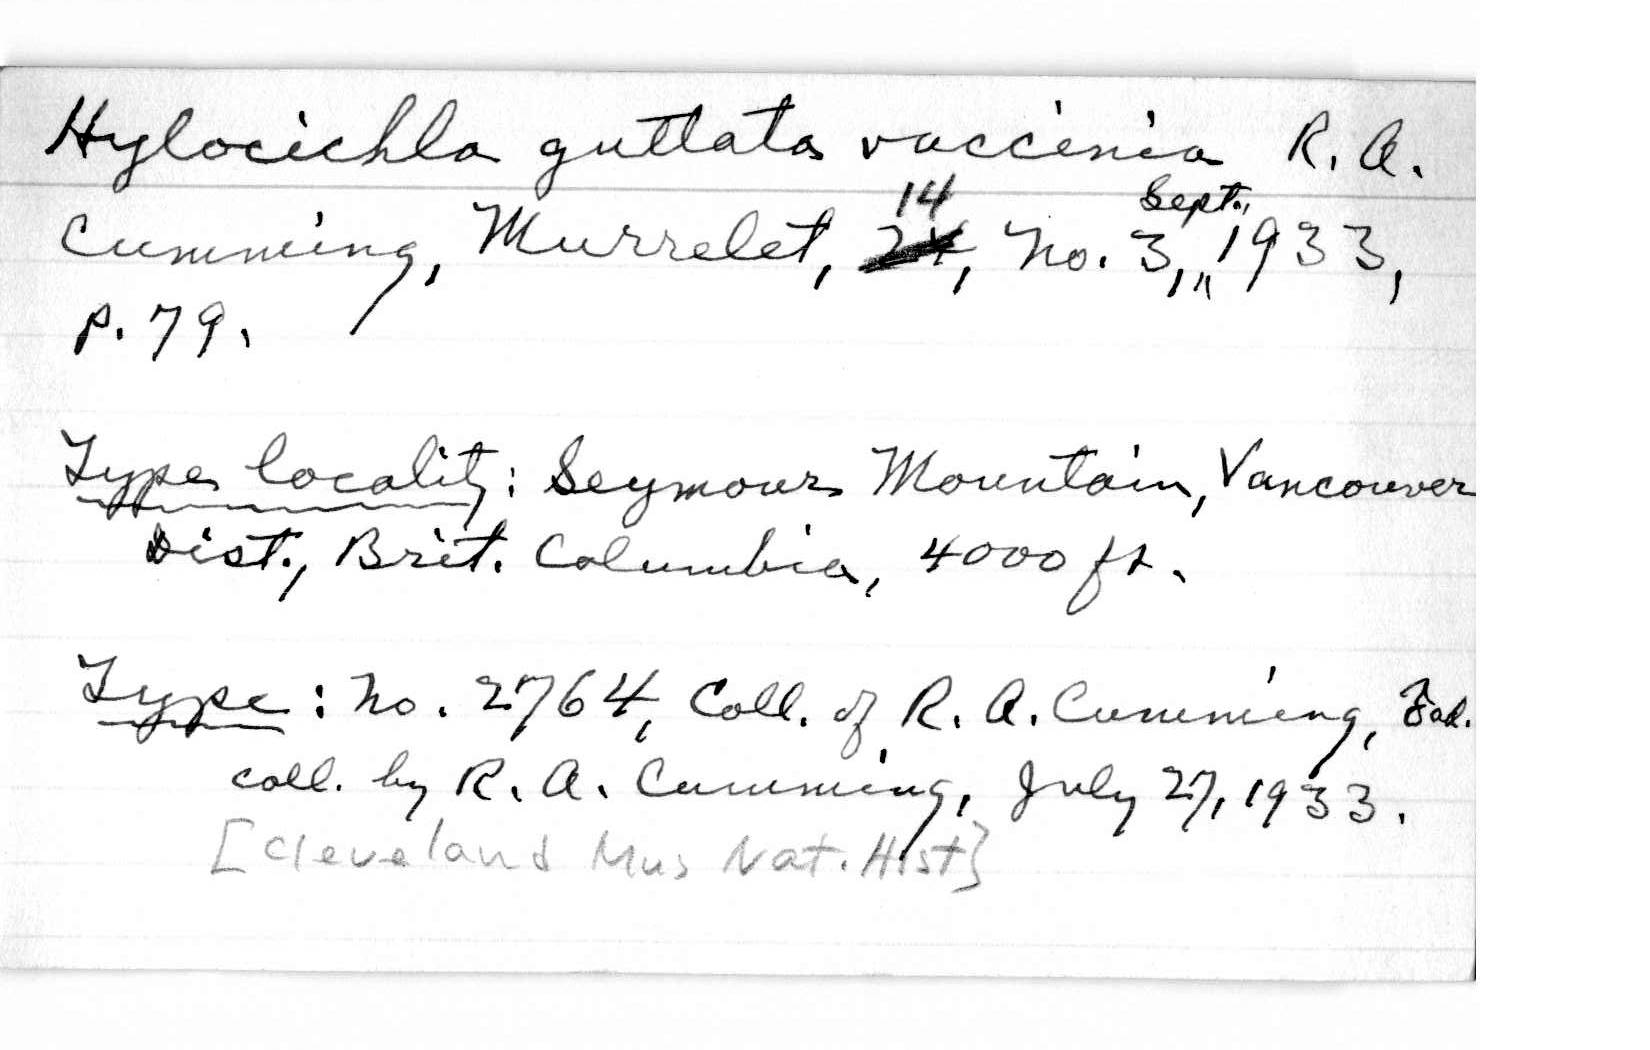 Hylocichla guttata vaccinia R. A.
Cumming, Murrelet, 14, No. 3, Sept., 1933,
p. 79.
Type locality: Seymour Mountain, Vancouver
Dist., Brit. Columbia, 4000 ft.
Type: No. 2764, Coll. of R. A. Cumming, ad.
coll. by R. A. Cumming, July 27, 1933.
[Cleveland Mus Nat. Hist]